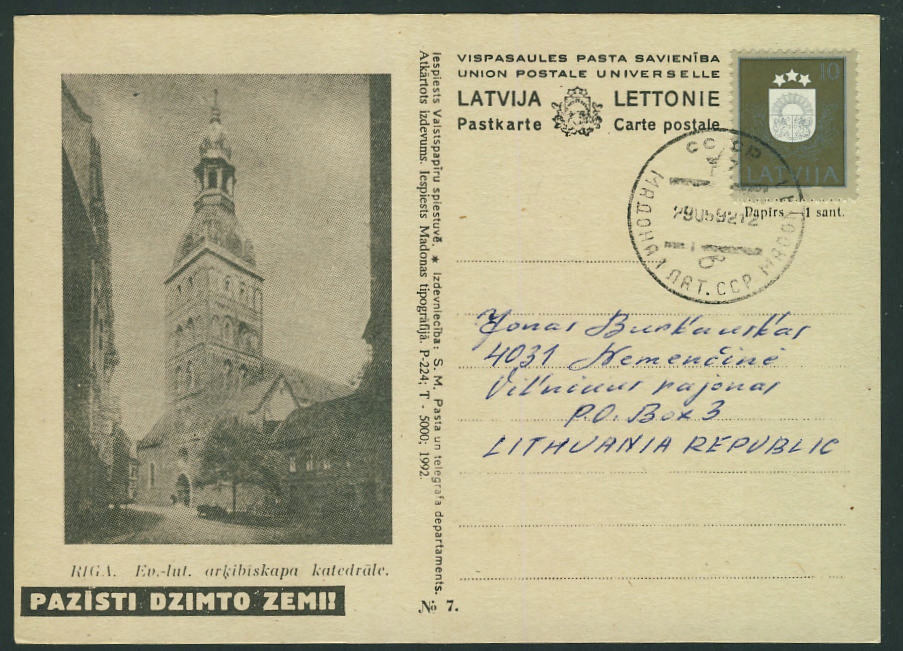 RIGA. Ev.-lut. arķibiskapa katedrāle.
PAZĪSTI DZIMTO ZEMI!
Iespiests Valstspapīru spiestuvē. * Izdevniecība: S. M. Pasta un telegrafa departaments.
Atkārtots izdevums. Iespiests Madonas tipogrāfijā. P-224; T - 5000; 1992.
№ 7.
VISPASAULES PASTA SAVIENĪBA
UNION POSTALE UNIVERSELLE
LATVIJA LETTONIE
Pastkarte Carte postale
10
LATVIJA
Papīrs — 1 sant.
СССР
МАДОНА 1 ЛАТ. ССР MADONA
Jonas Burkauskas
4031 Nemenčinė
Vilniaus rajonas
P.O. Box 3
LITHUANIA REPUBLIC